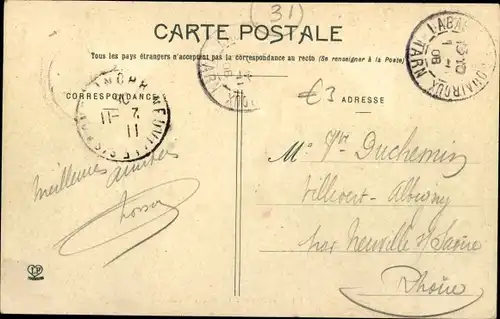 (31)
CARTE POSTALE
Tous les pays étrangers n'acceptent pas la correspondance au recto (Se renseigner à la poste)
CORRESPONDANCE
ADRESSE
€3
TARN
06
TARN
11
2 - 11
Meilleures amitiés
Mr Vor Duchemin
Villevert-Albigny
par Neuville s/ Saône
Rhône